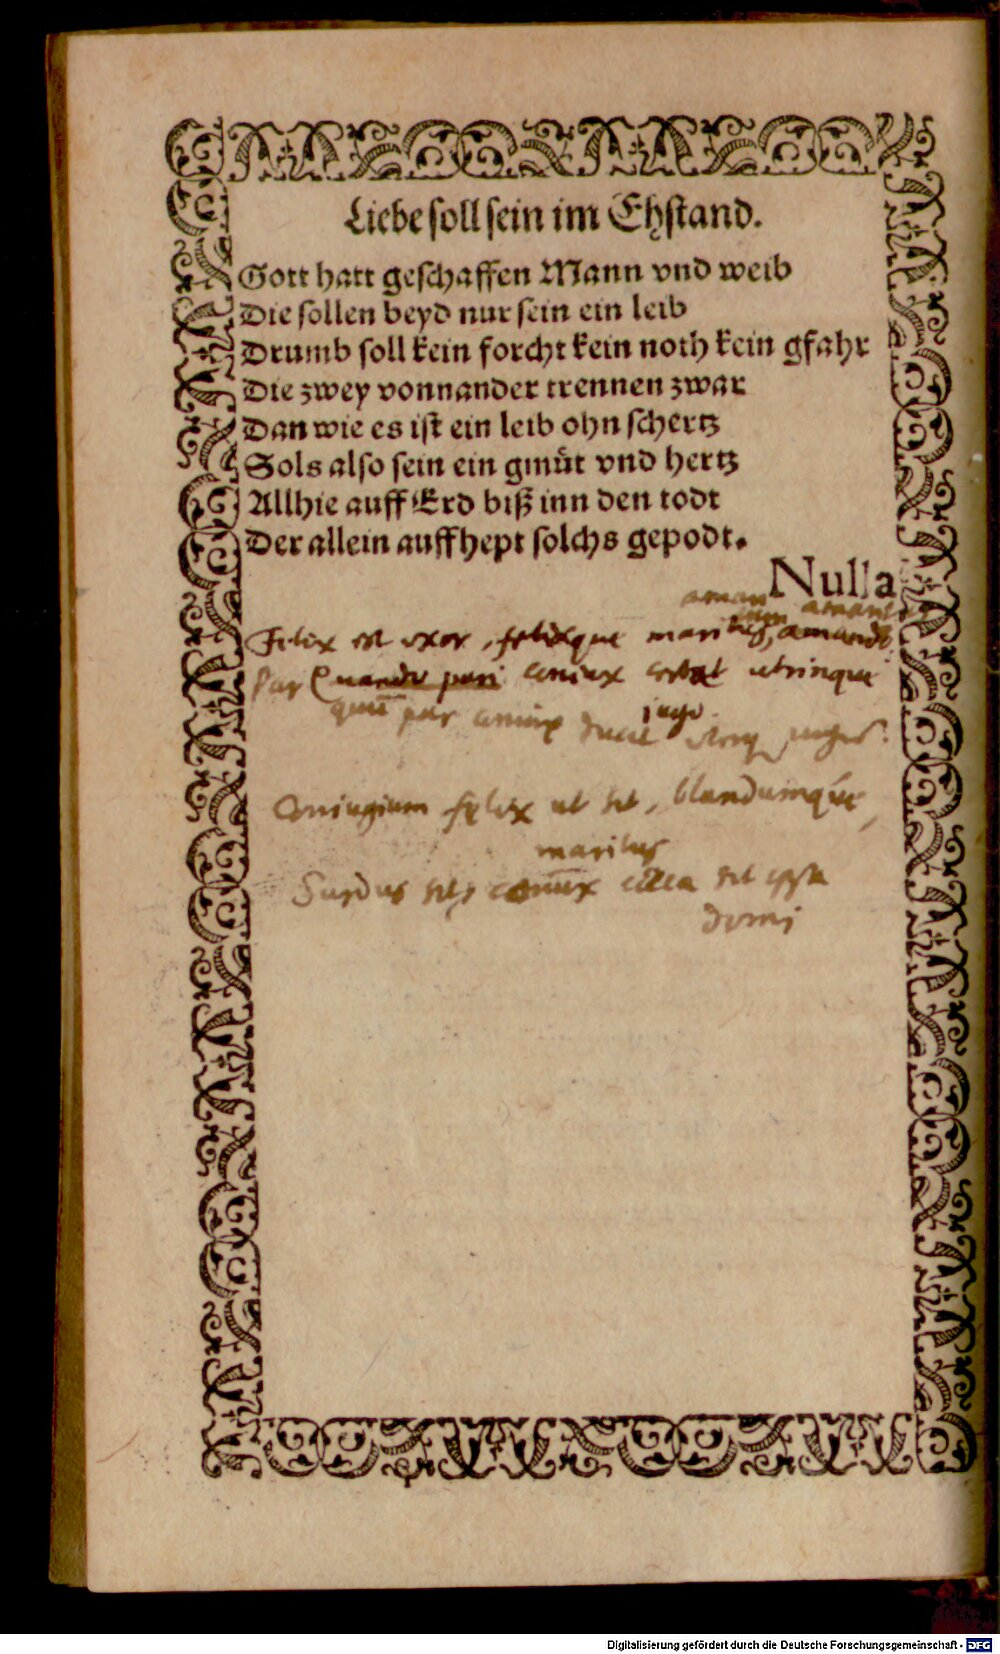 Liebe soll sein im Ehstand.
Gott hatt geschaffen Mann vnd weib
Die sollen beyd nur sein ein leib
Drumb soll kein forcht kein noth kein gfahr
Die zwey vonnander trennen zwar
Dan wie es ist ein leib ohn schertz
Sols also sein ein gmüt vnd hertz
Allhie auff Erd biß inn den todt
Der allein auffhept solchs gepodt.
Nulla
Felix est uxor, felixque maritus,
Par Quando pari coniux certat utrinque
par coniux jugo
Coniugium felix ut sit, blandumque,
maritus
Surdus sit, coniux cæca sit ipsa
domi
Digitalisierung gefördert durch die Deutsche Forschungsgemeinschaft - DFG